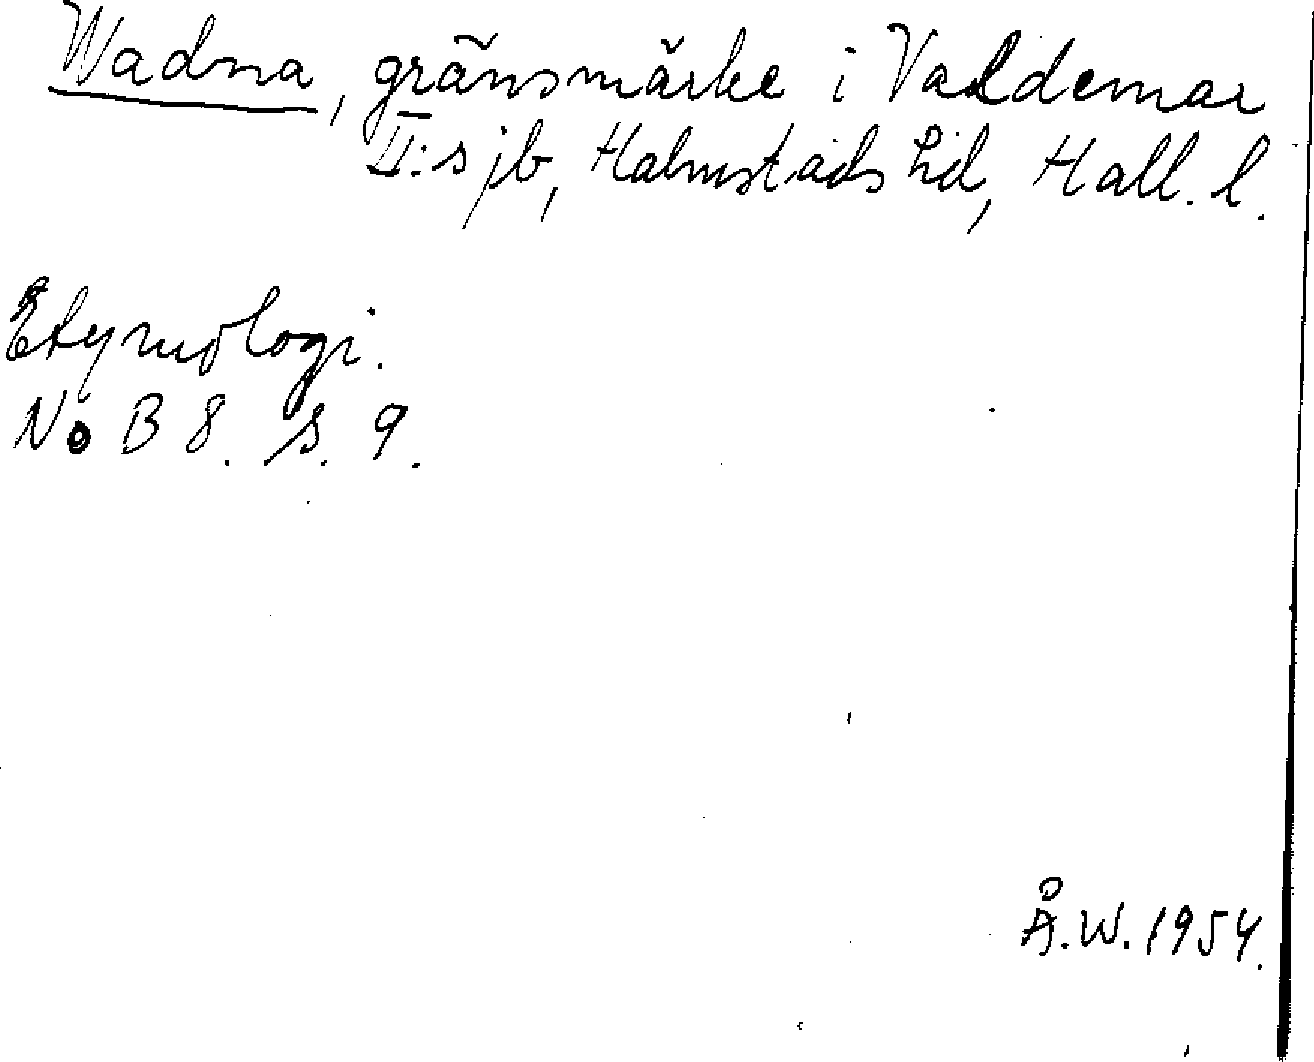 Wadna, gränsmärke i Valdemar
II:s jb, Halmstads hd, Hall. l.
Etymologi.
NoB 8. s. 9.
Å.W. 1954.